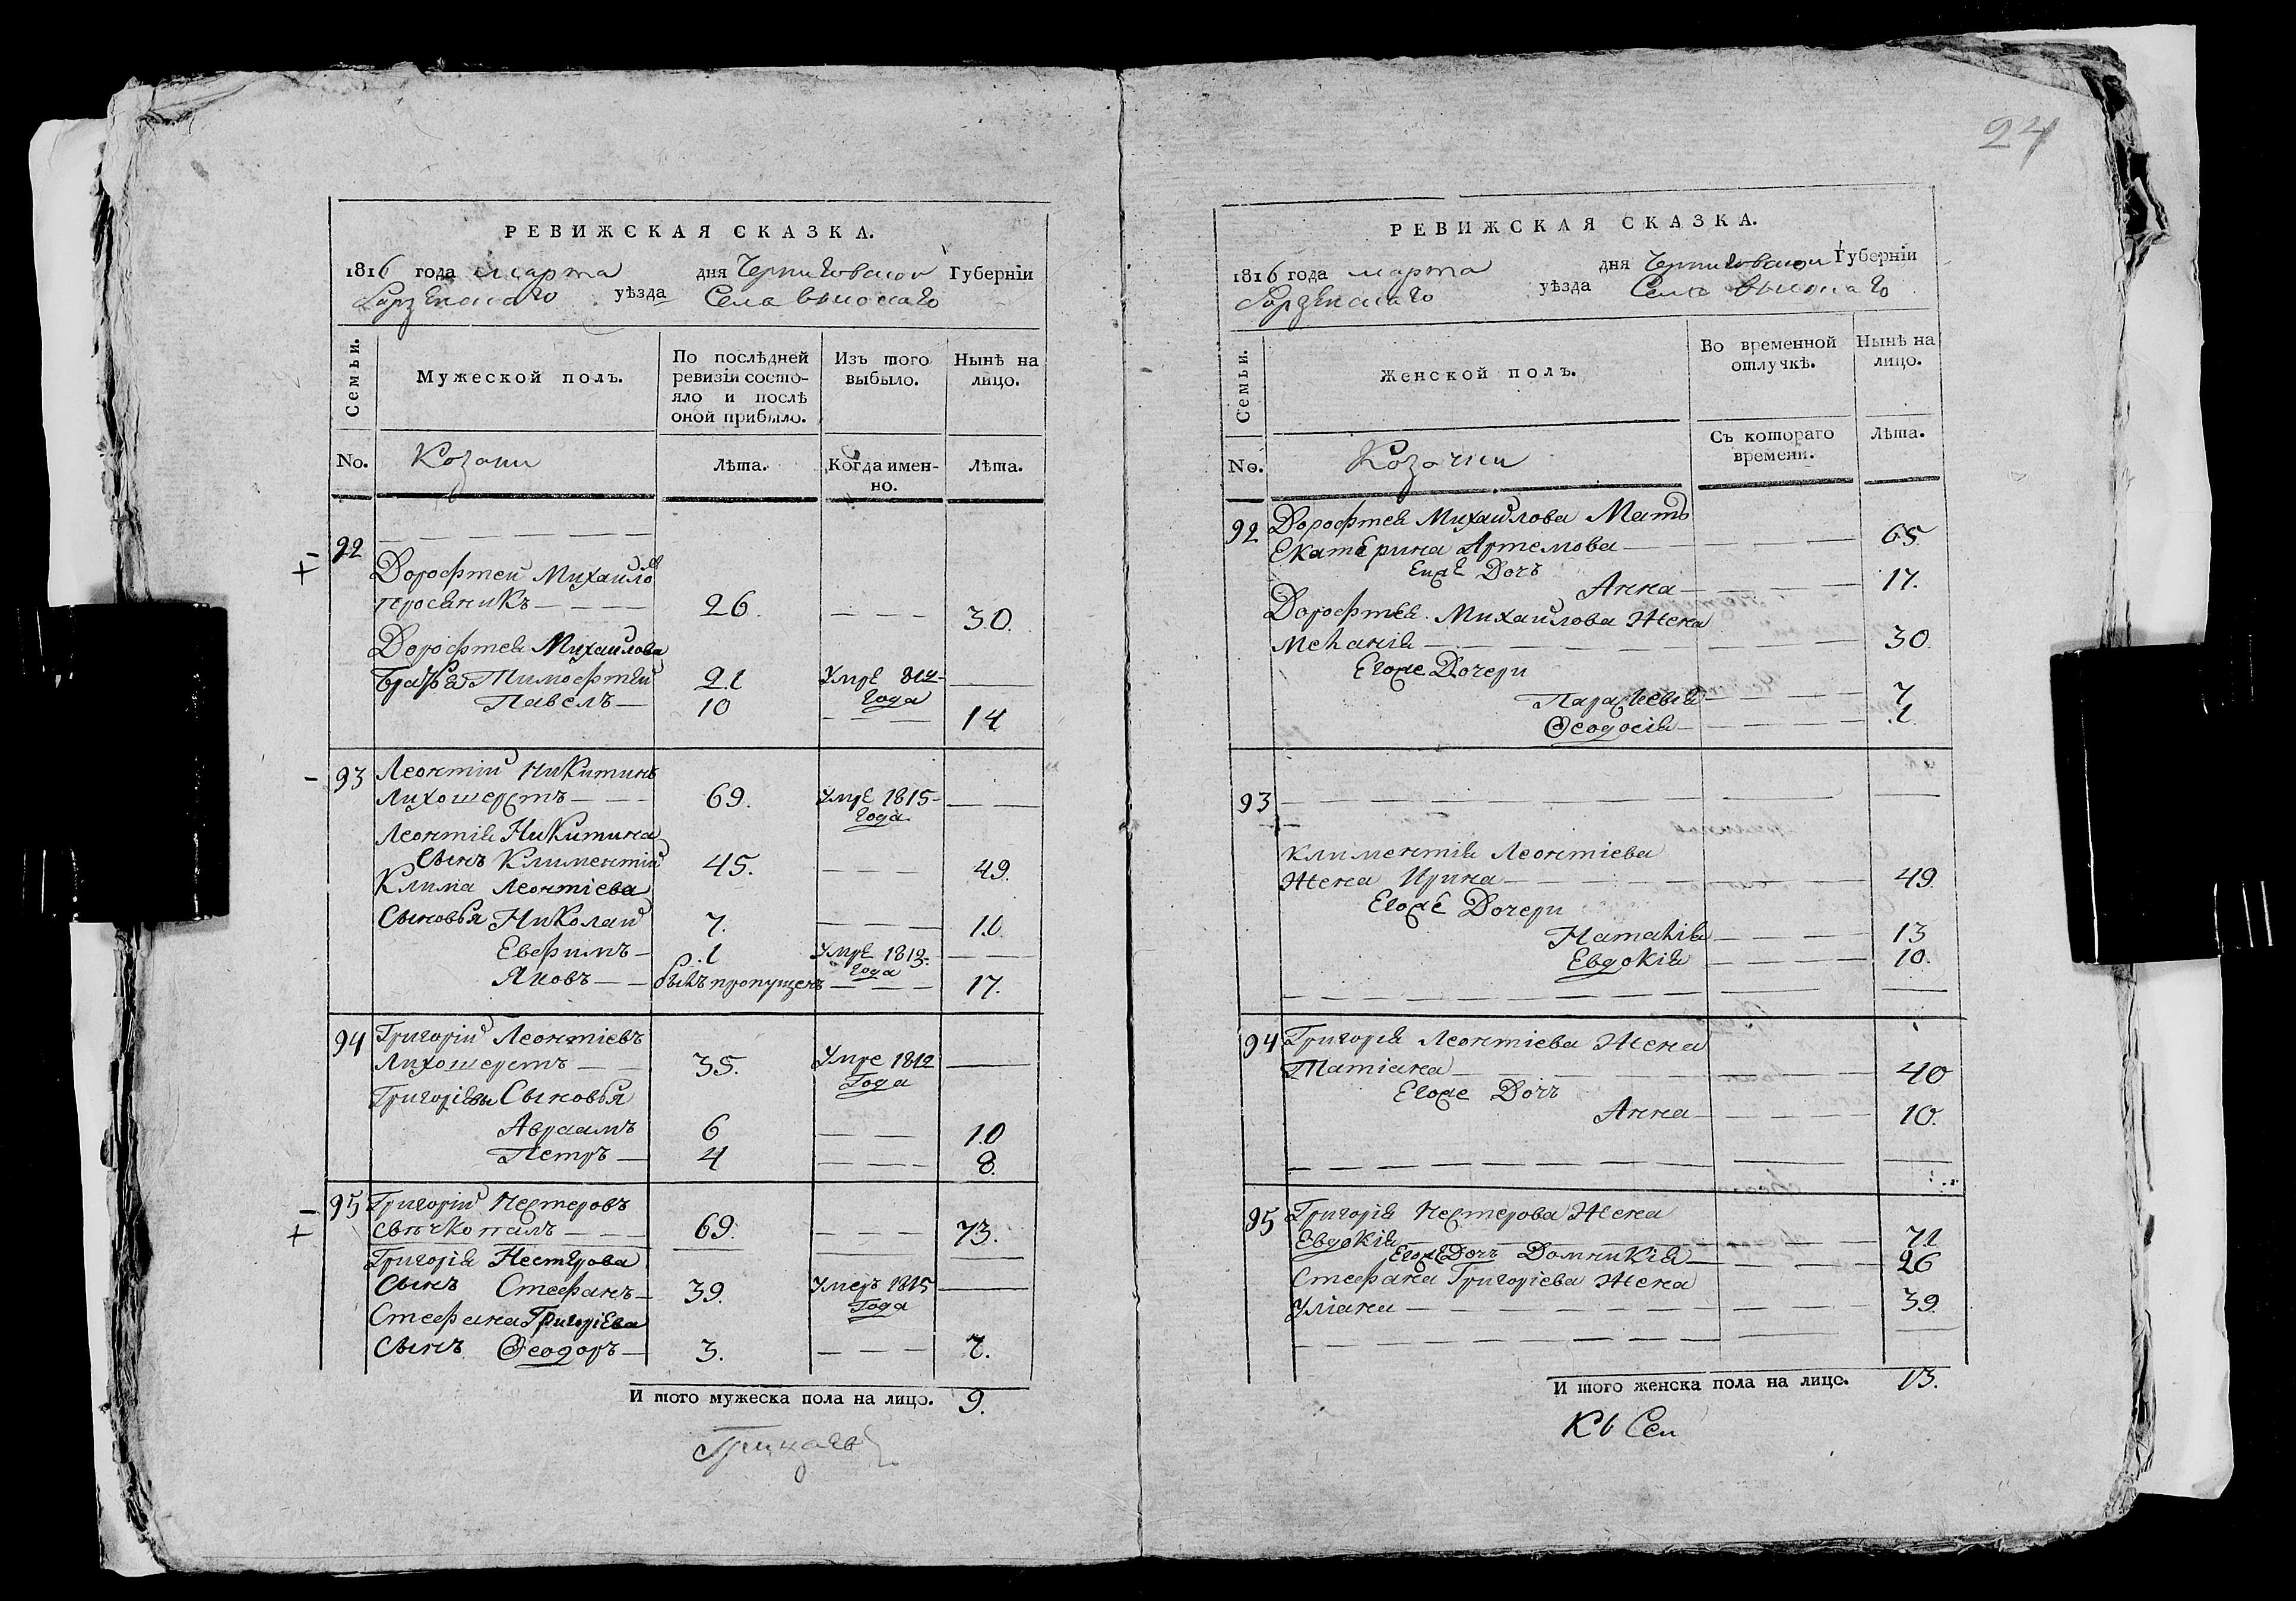 24
РЕВИЖСКАЯ СКАЗКА.
1816 года марта дня Черниговской Губерніи
уѣзда Села
Семьи.
Мужеской полъ.
По послѣдней ревизіи состояло и послѣ оной прибыло.
Изъ того выбыло.
Нынѣ на лицо.
No. Козаки
Лѣта.
Когда именно.
Лѣта.
92
Дорофтей Михайловъ
26. 30.
Дорофтея Михайлова
Братья Тимофтей 21 Умре 812
Года
Павелъ 10 14
93 Леонтий Никитинъ
Лихошерстъ 69. Умре 1815
Года
Леонтия Никитина
Сынъ Климентий 45. 49.
Клима Леонтіева
Сыновья Николай 7. 11.
Евфимъ 1 Умре 1812
Года
Яковъ былъ пропущенъ 17.
94 Григорий Леонтіевъ
Лихошерстъ 35. Умре 1812
Года
Григоріевы Сыновья
Авраамъ 6 10
Петръ 4 8.
95 Григорий Нестеровъ
69. 73.
Григорія Нестерова
Сынъ Стефанъ 39. Умеръ 1815
Года
Стефана Григоріева
Сынъ Ѳеодоръ 3. 7.
И того мужеска пола на лицо. 9.
РЕВИЖСКАЯ СКАЗКА.
1816 года марта дня Черниговской Губерніи
уѣзда Села
Семьи.
Женской полъ.
Во временной отлучкѣ.
Нынѣ на лицо.
No. Козачки
Съ котораго времени.
Лѣта.
92 Дорофтея Михайлова Мать
Екатерина Артемова 65
Еиже Дочь
Анна 17.
Дорофтея Михайлова Жена
Меланія 30
Егоже Дочери
Параскевія 7
Ѳеодосія 1.
93
Климентія Леонтіева
Жена Ирина 49
Егоже Дочери
Наталія 13
Евдокія 10.
94 Григорія Леонтіева Жена
Татіана 40
Егоже Дочь
Анна 10.
95 Григорія Нестерова Жена
Евдокія 71
Егоже Дочь Домникія 26
Стефана Григоріева Жена
Уліана 39
И того женска пола на лицо. 13.